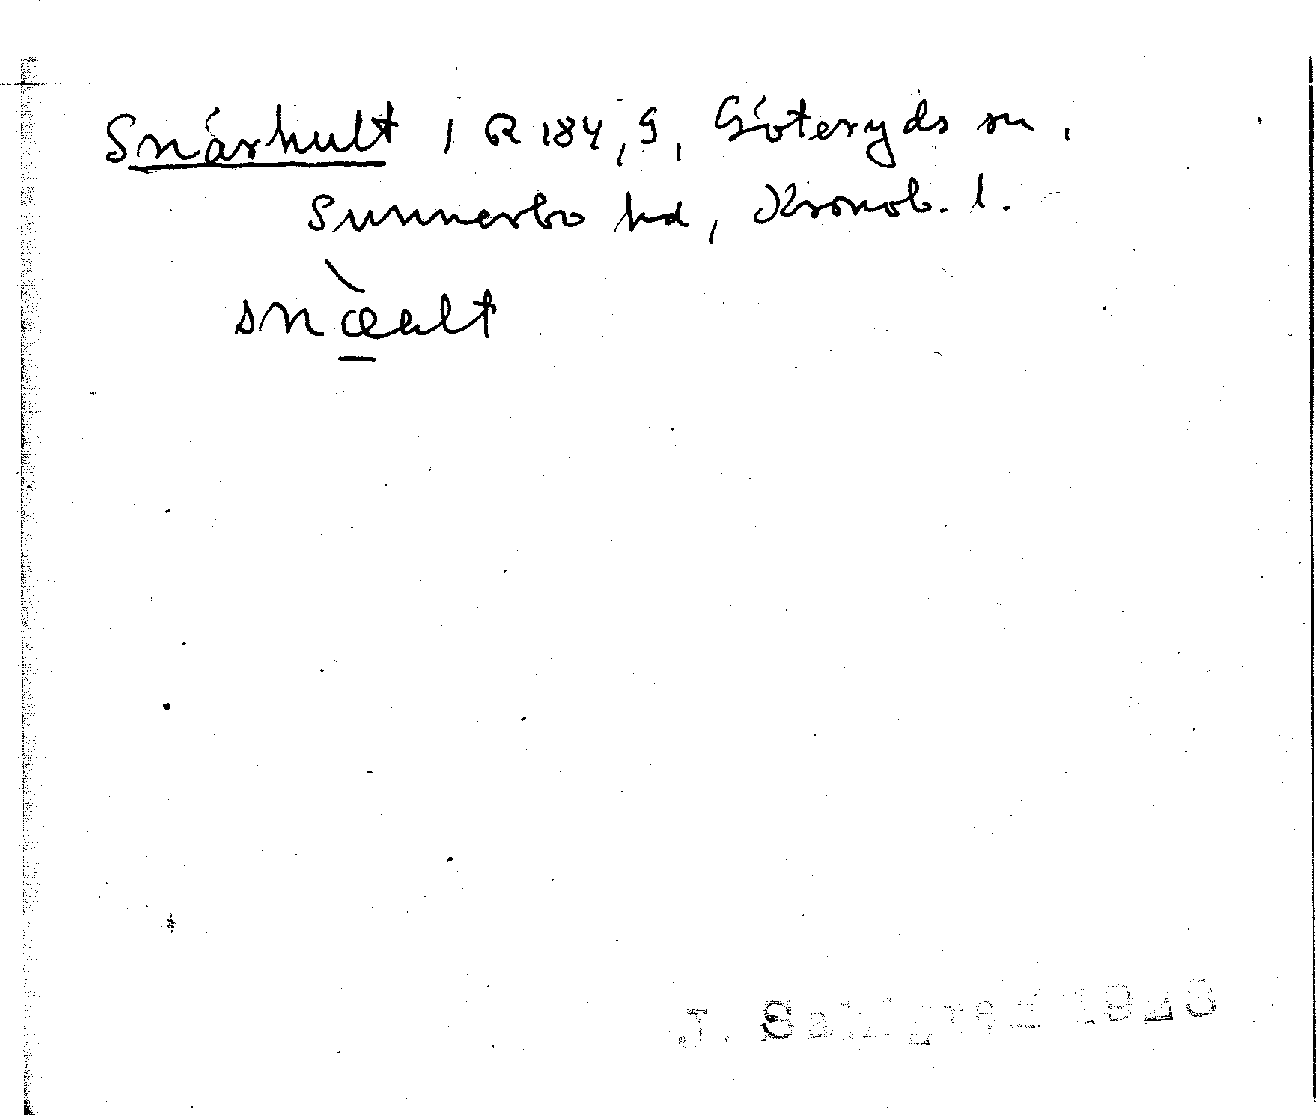 Snärhult 1 R 184, G, Göteryds sn,
Sunnerbo hd, Kronob. l.
snæ̀alt
J. Sahlgren 1923